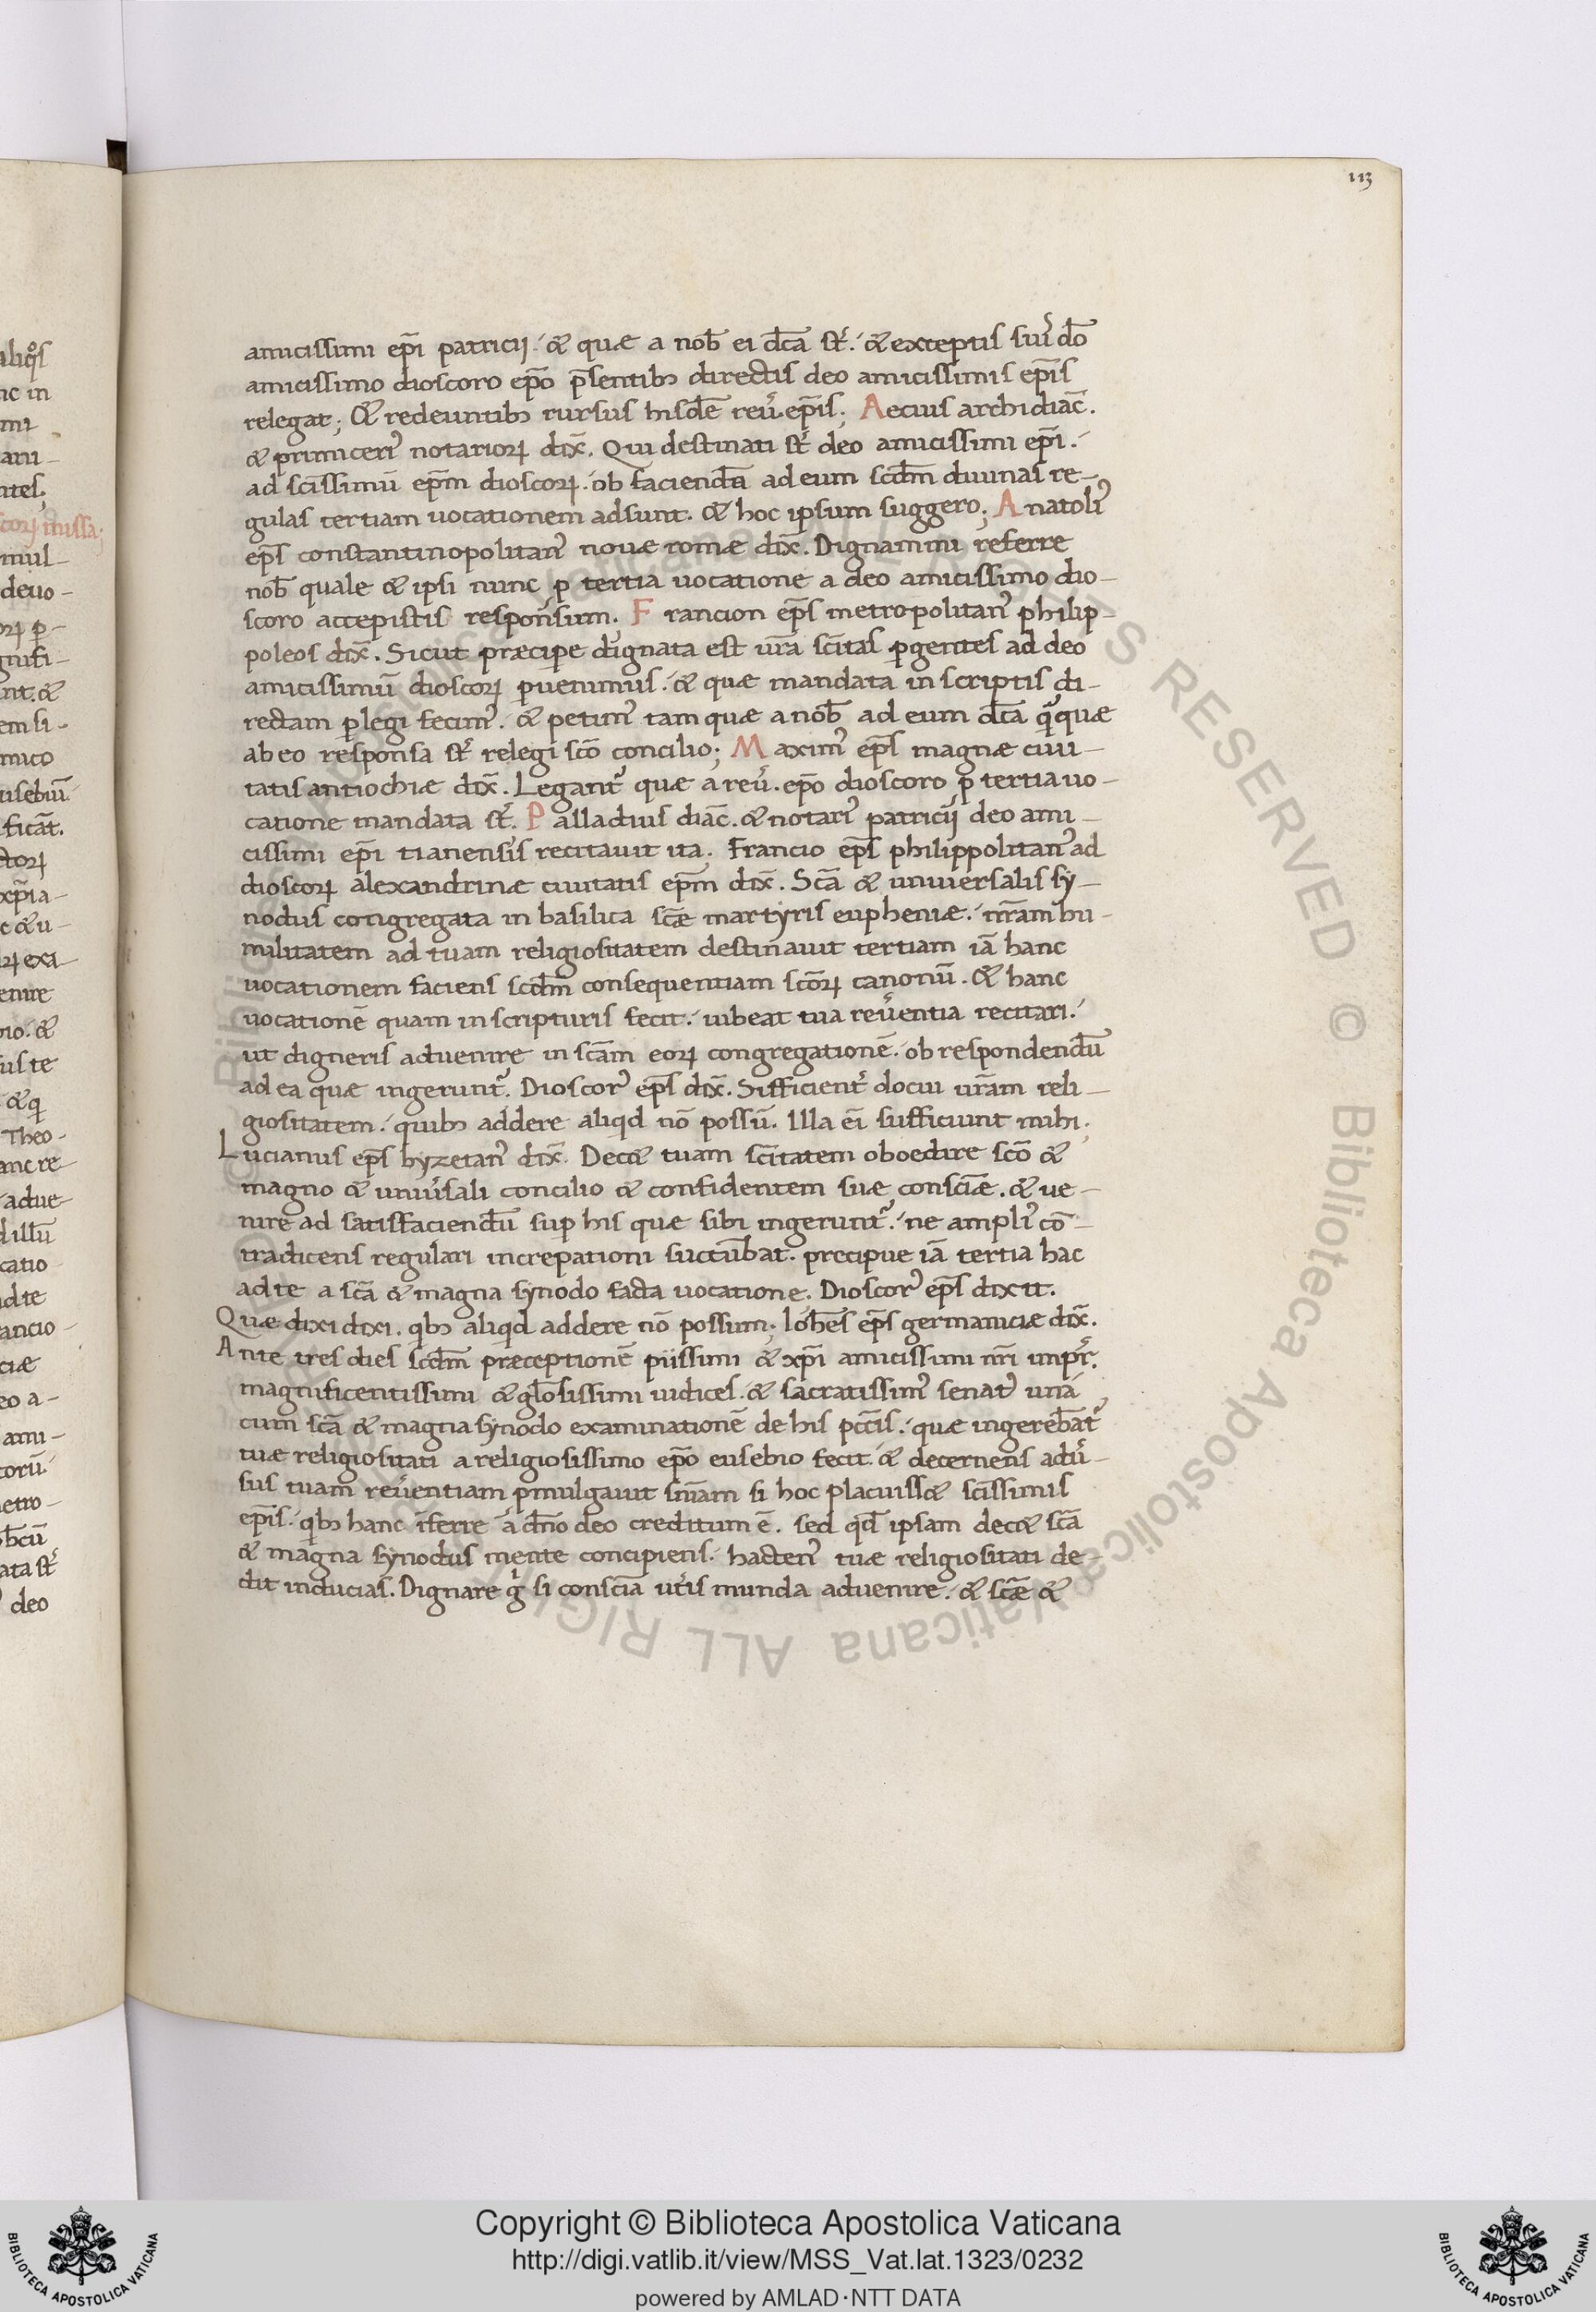 113
amicissimi ep̄i patricij. & quæ a nob̄ ei dc̄a st̄. & exceptis sui do
amicissimo dioscoro ep̄o p̄sentib; directis deo amicissimis ep̄is
relegat; & redeuntib; rursus hisdē reu̓. ep̄is; Aecius archidiac̄.
& primiceri᾽ notarioꝝ dix̄. Qui destinati st̄ deo amicissimi ep̄i.
ad sc̄issimū ep̄m dioscoꝝ. ob faciendā ad eum scd̄m diuinas re-
gulas tertiam uocationem adsunt. & hoc ipsum suggero; Anatoli᾽
ep̄s constantinopolitan᾽ nouæ romæ dix̄. Dignamini referre
nob̄ quale & ipsi nunc p̱ tertia uocatione a deo amicissimo dio-
scoro accepistis responsum. Francion ep̄s metropolitan᾽ philip-
poleos dix̄. Sicut præcipe dignata est ur̄a sc̄itas p̱gentes ad deo
amicissimū dioscoꝝ p̱uenimus. & quæ mandata in scriptis di-
rectam p̱legi fecim᾽. & petim᾽ tam quæ a nob̄ ad eum dc̄a q̄quæ
ab eo responsa st̄ relegi sc̄o concilio; Maxim᾽ ep̄s magnæ ciui-
tatis antiochiæ dix̄. Legant᾽ quæ a reu̓. ep̄o dioscoro p̱ tertia uo-
catione mandata st̄. Palladius diac̄. & notari᾽ patricij deo ami-
cissimi ep̄i tianensis recitauit ita. Francio ep̄s philippolitan᾽ ad
dioscoꝝ alexandrinæ ciuitatis ep̄m dix̄. Sc̄a & uniuersalis sy-
nodus congregata in basilica sc̄æ martyris eupheniæ. nr̄am hu-
militatem ad tuam religiositatem destinauit tertiam iā hanc
uocationem faciens scd̄m consequentiam sc̄oꝝ canonū. & hanc
uocationē quam in scripturis fecit. iubeat tua reu̓entia recitari.
ut digneris aduenire in sc̄am eoꝝ congregationē. ob respondendū
ad ea quæ ingerunt᾽. Dioscor᾽ ep̄s dix̄. Sifficient᾽ docui ur̄am reli-
giositatem. quib; addere aliqd nō possū. Illa ei̅ sufficiunt mihi.
Lucianus ep̄s byzetan᾽ dix̄. Dec& tuam sc̄itatem oboedire sc̄o &
magno & uniu̓sali concilio & confidentem suæ consc̄iæ. & ue-
nire ad satisfaciendū sup̱ his quæ sibi ingerunt᾽. ne ampli᾽ cō-
tradicens regulari increpationi succūbat. precipue iā tertia hac
ad te a sc̄a & magna synodo facta uocatione. Dioscor᾽ ep̄s dixit.
Quæ dixi dixi. qb; aliqd addere nō possum; Ioh̄es ep̄s germaniciæ dix̄.
Ante tres dies scd̄m præceptionē piissimi & xp̄i amicissimi nr̄i imp̱r̄.
magnificentissimi & gl̄osissimi iudices. & sacratissim᾽ senat᾽ una
cum sc̄a & magna synodo examinationē de his pcc̄is. quæ ingerebāt᾽
tuæ religiositati a religiosissimo ep̄o eusebio fecit. & decernens adu̓-
sus tuam reu̓entiam p̱mulgauit sn̄iam si hoc placuiss& sc̄issimis
ep̄is. qb; hanc īferre a dn̄o deo creditum ē. sed qd̄ ipsam dec& sc̄a
& magna synodus mente concipiens. hacten᾽ tuæ religiositati de-
dit inducias. Dignare g̊ si consc̄ia ut̓is munda aduenire. & sc̄æ &
Copyright © Biblioteca Apostolica Vaticana
http://digi.vatlib.it/view/MSS_Vat.lat.1323/0232
powered by AMLAD·NTT DATA